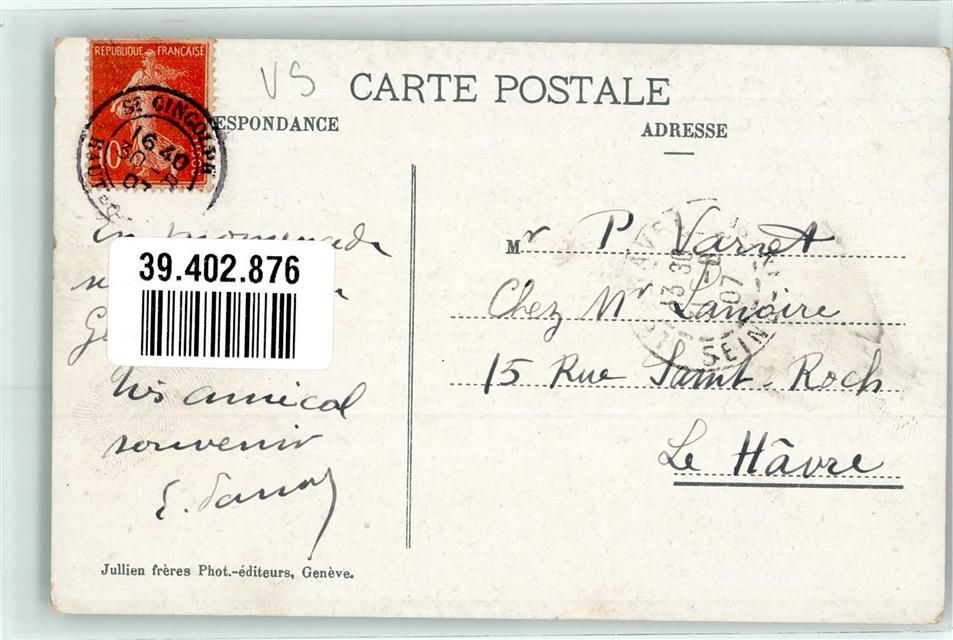 RÉPUBLIQUE FRANÇAISE
VS
CARTE POSTALE
ESPONDANCE
ADRESSE
ST GINGOLPH
16 40
30 - 8
07
HAUTE
En promenade
39.402.876
Très amical
souvenir
Mr P. Varret
Chez Mr Lanoire
15 Rue Saint-Roch
Le Hâvre
13 30
07
SEINE
Jullien frères Phot.-éditeurs, Genève.